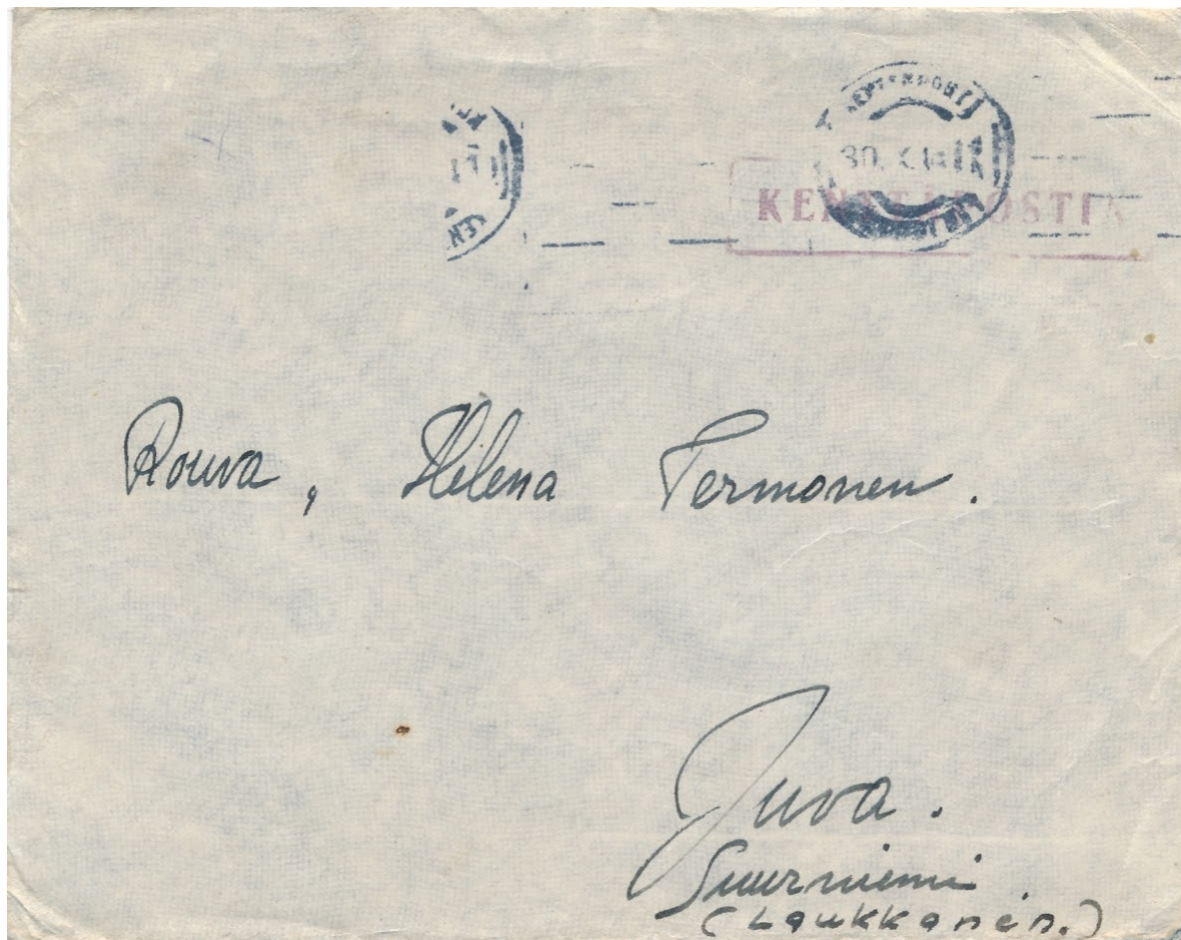 30. X. 
KENTTÄPOSTIA
Rouva, Helena Termonen.
Juva.
Suurniemi
(Laukkanen.)